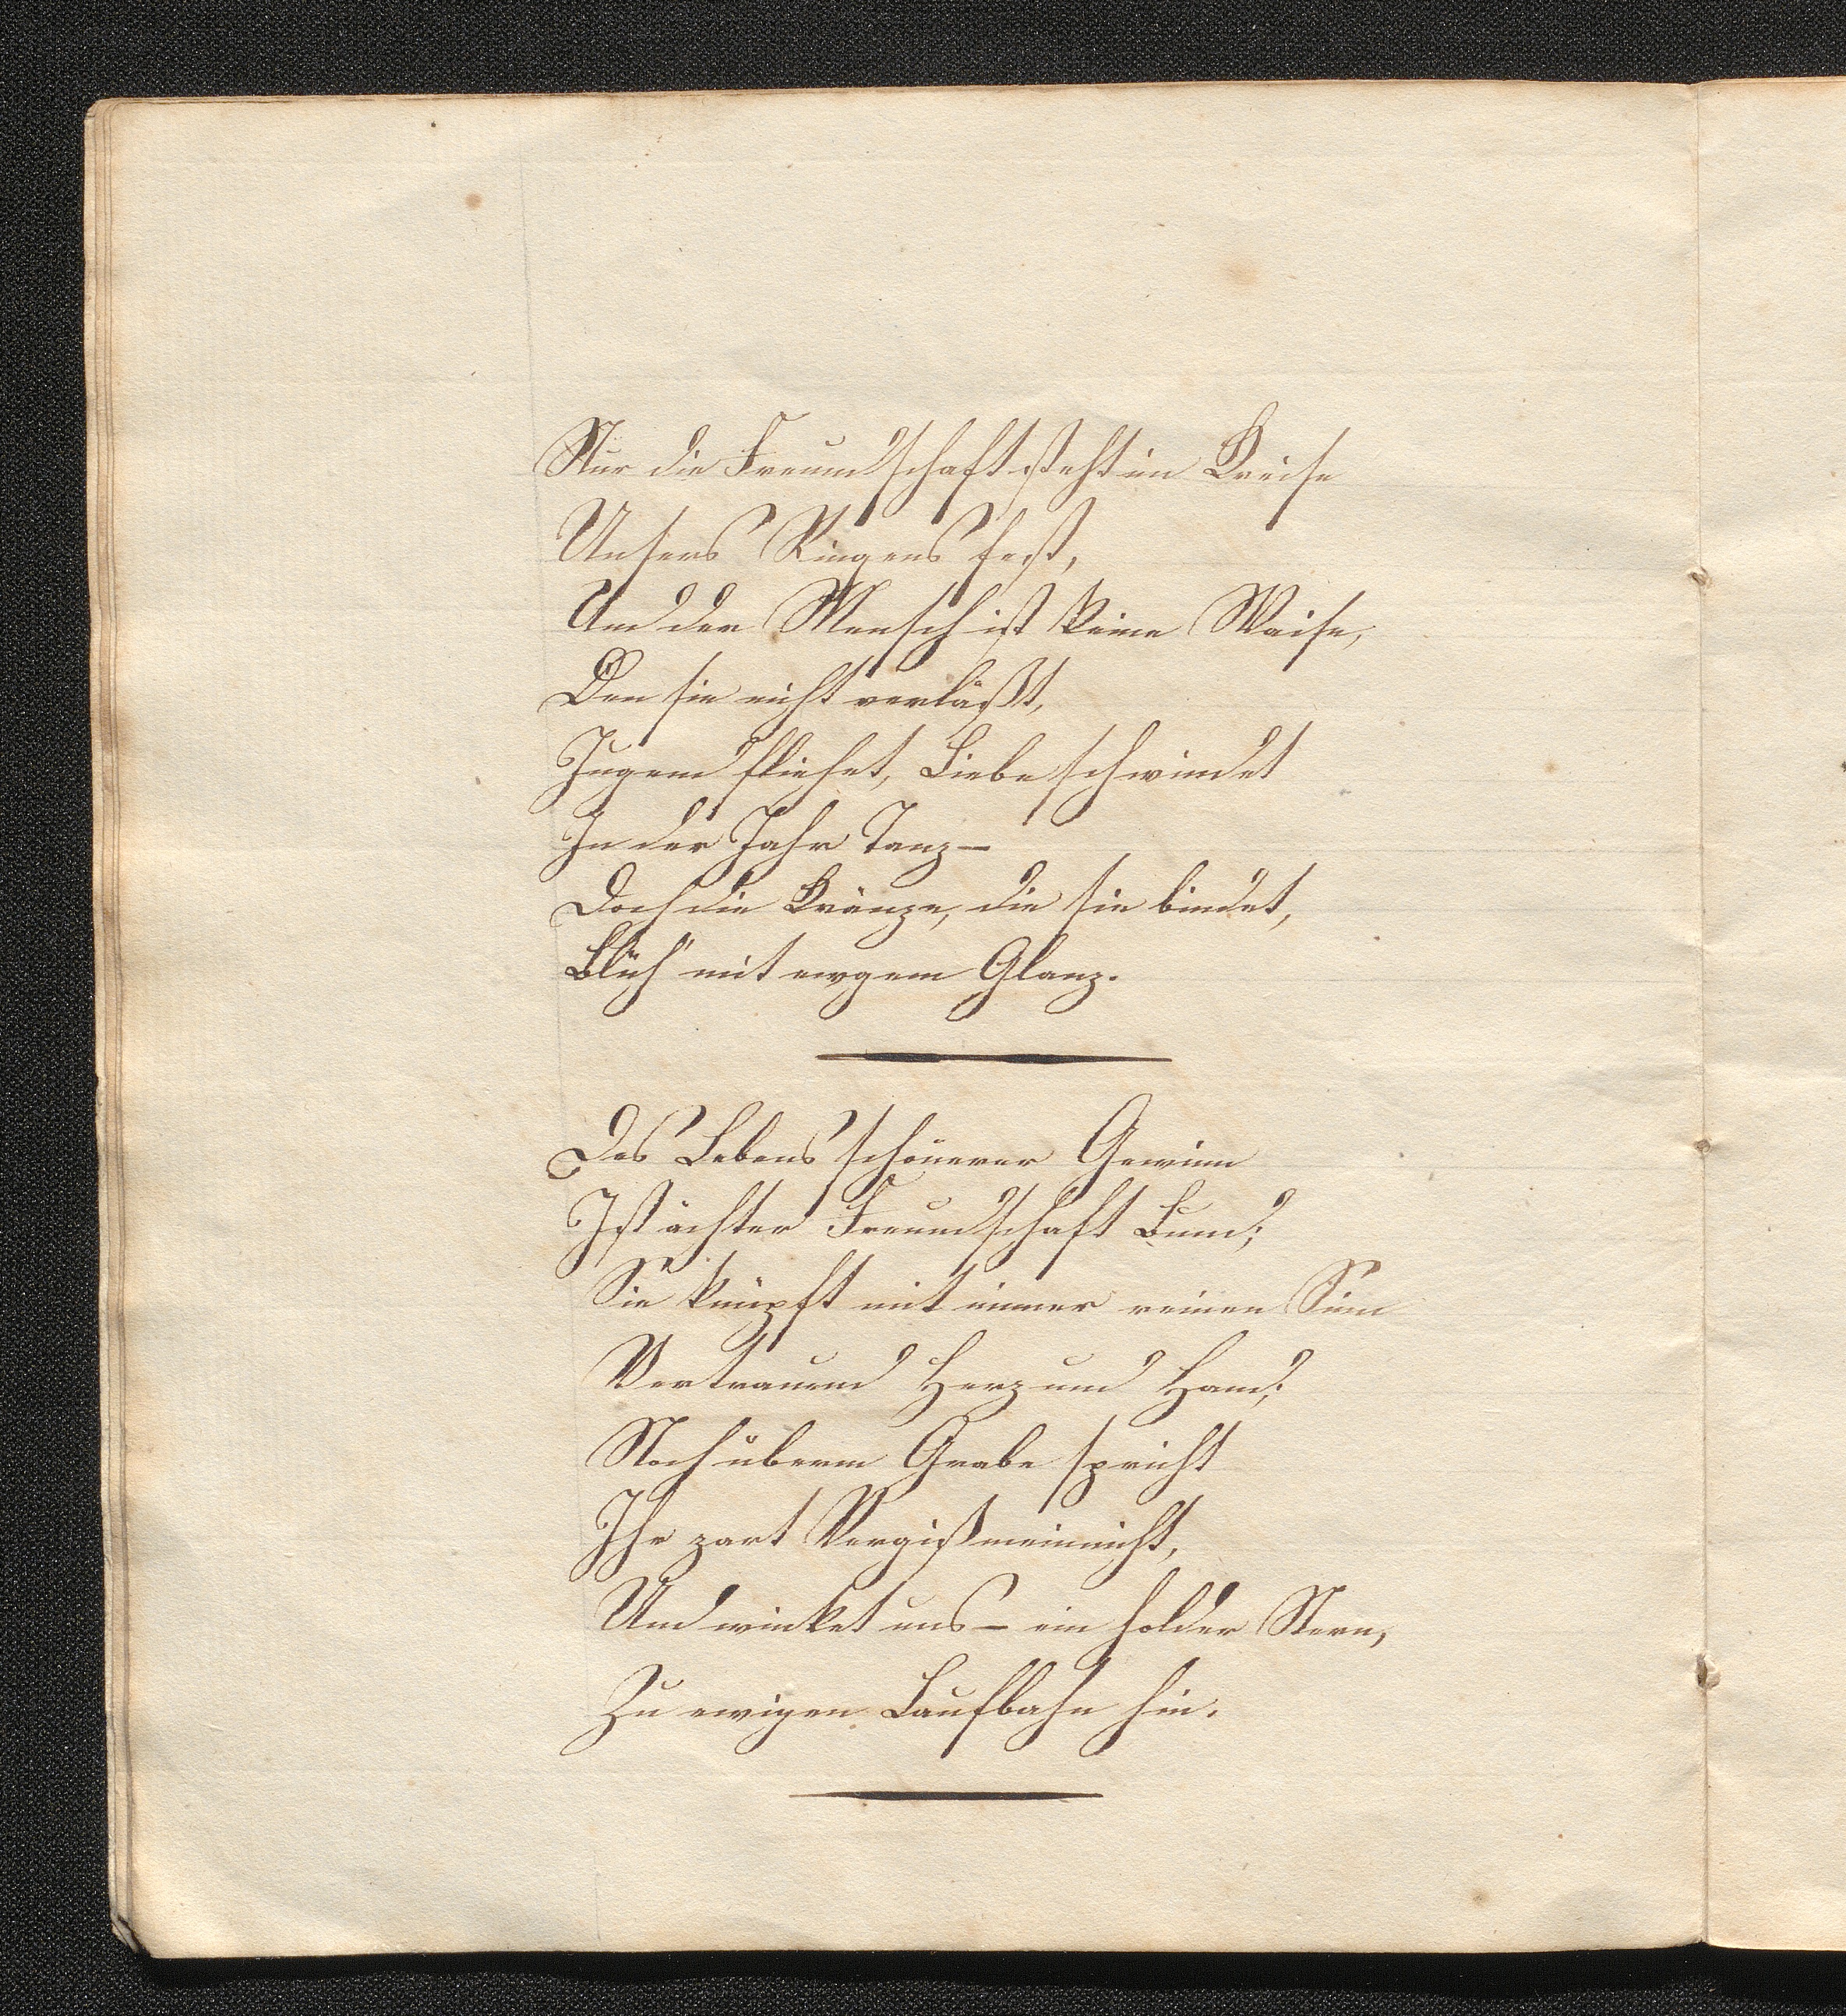 Nur die Freundschaft steht im Kreise
Unsers Ringens fest,
Und der Mensch ist keine Waise,
Den sie nicht verläßt,
Jugend fliehet, Liebe schwindet
In der Jahr Tanz –
Doch die Kränze, die sie bindet,
Blüh'n mit ewgem Glanz.
Des Lebens schönerer Gewinn
Ist ächter Freundschaft Bund;
Sie knüpft mit immer reinen Sinn
Vertrauend Herz und Hand;
Noch überm Grabe spricht
Ihr zart Vergißmeinnicht,
Und winket uns – ein holder Stern,
Zu ewigen Laufbahn hin.